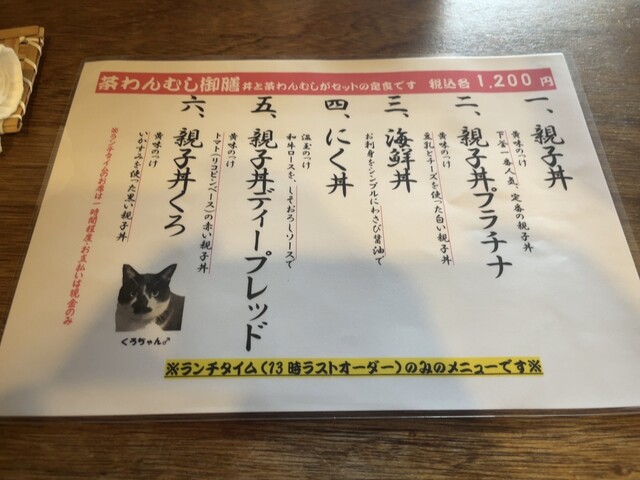 茶わんむし御膳 丼と茶わんむしがセットの定食です 税込各1,200円
一、親子丼
黄味のっけ
下釜一番人気、定番の親子丼
二、親子丼プラチナ
黄味のっけ
豆乳とチーズを使った白い親子丼
三、海鮮丼
お刺身をシンプルにわさび醤油で
四、にく丼
温玉のっけ
和牛ロースを、しそおろしソースで
五、親子丼ディープレッド
黄味のっけ
トマト(リコピンベース)の赤い親子丼
六、親子丼くろ
黄味のっけ
いかすみを使った黒い親子丼
※ランチタイムのお席は一時間程度・お支払いは現金のみ
くろちゃん♂
※ランチタイム(13時ラストオーダー)のみのメニューです※